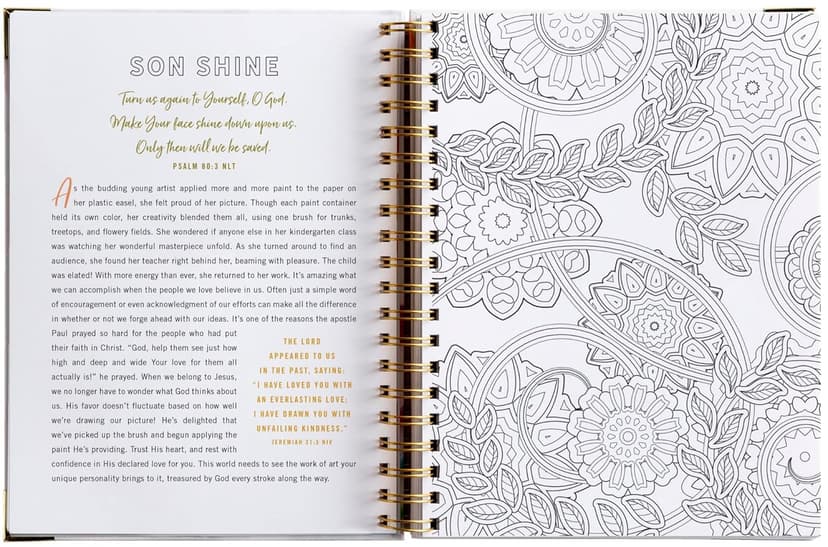 SON SHINE
Turn us again to Yourself, O God.
Make Your face shine down upon us.
Only then will we be saved.
PSALM 80:3 NLT
As the budding young artist applied more and more paint to the paper on
her plastic easel, she felt proud of her picture. Though each paint container
held its own color, her creativity blended them all, using one brush for trunks,
treetops, and flowery fields. She wondered if anyone else in her kindergarten class
was watching her wonderful masterpiece unfold. As she turned around to find an
audience, she found her teacher right behind her, beaming with pleasure. The child
was elated! With more energy than ever, she returned to her work. It's amazing what
we can accomplish when the people we love believe in us. Often just a simple word
of encouragement or even acknowledgment of our efforts can make all the difference
in whether or not we forge ahead with our ideas. It's one of the reasons the apostle
Paul prayed so hard for the people who had put
their faith in Christ. “God, help them see just how
high and deep and wide Your love for them all
actually is!” he prayed. When we belong to Jesus,
we no longer have to wonder what God thinks about
us. His favor doesn't fluctuate based on how well
we're drawing our picture! He's delighted that
we've picked up the brush and begun applying the
paint He's providing. Trust His heart, and rest with
confidence in His declared love for you. This world needs to see the work of art your
unique personality brings to it, treasured by God every stroke along the way.
THE LORD
APPEARED TO US
IN THE PAST, SAYING:
“I HAVE LOVED YOU WITH
AN EVERLASTING LOVE;
I HAVE DRAWN YOU WITH
UNFAILING KINDNESS.”
JEREMIAH 31:3 NIV